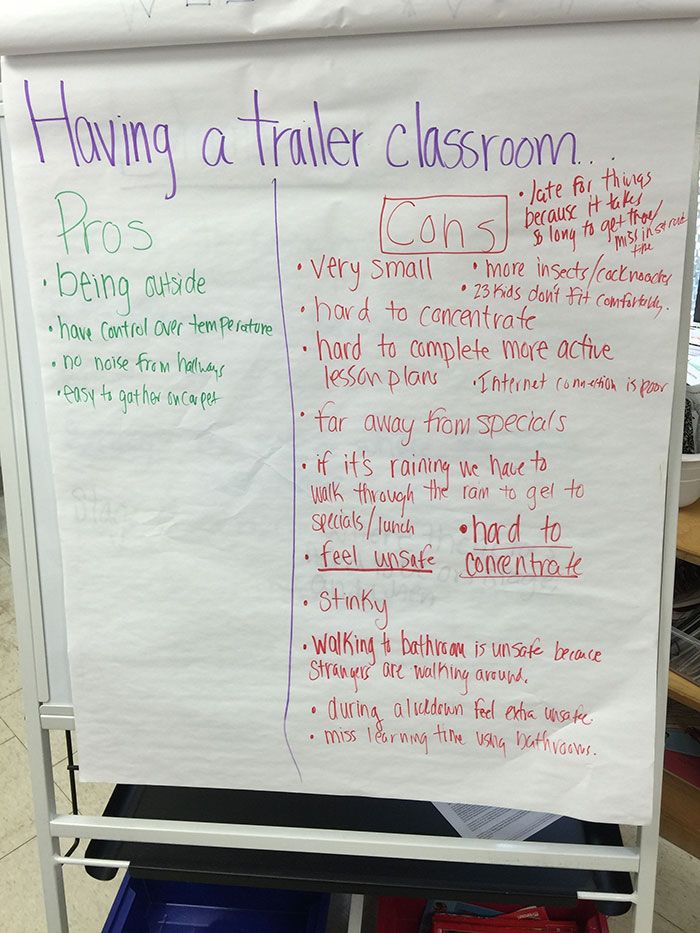 Having a trailer classroom...
Pros
• being outside
• have control over temperature
• no noise from hallways
• easy to gather on carpet
Cons
• late for things
because it takes
so long to get there/
miss instruct
time
• very small
• more insects/cockroaches
• 23 kids don't fit comfortably.
• hard to concentrate
• hard to complete more active
lesson plans
• Internet connection is poor
• far away from specials
• if it's raining we have to
walk through the rain to get to
specials/lunch
• hard to
concentrate
• feel unsafe
• stinky
• walking to bathroom is unsafe because
strangers are walking around.
• during a lockdown feel extra unsafe.
• miss learning time using bathrooms.